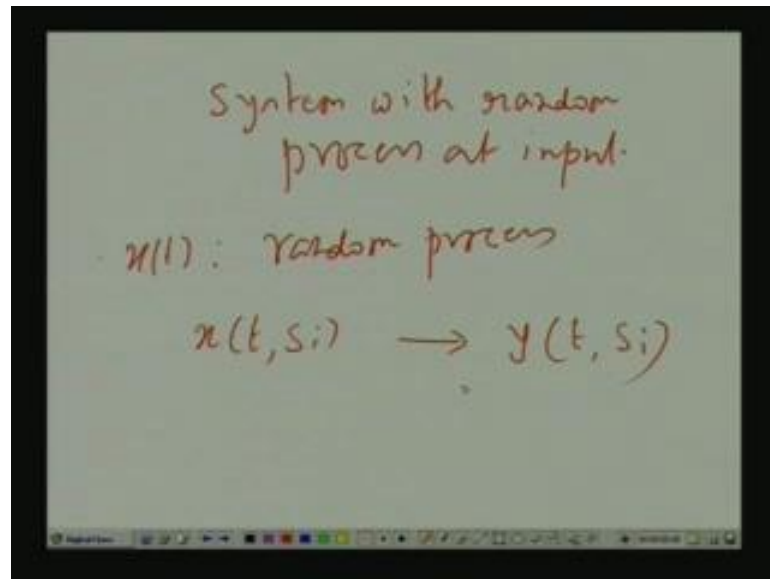 System with random
process at input.
x(t): random process
x(t, si) → y(t, si)